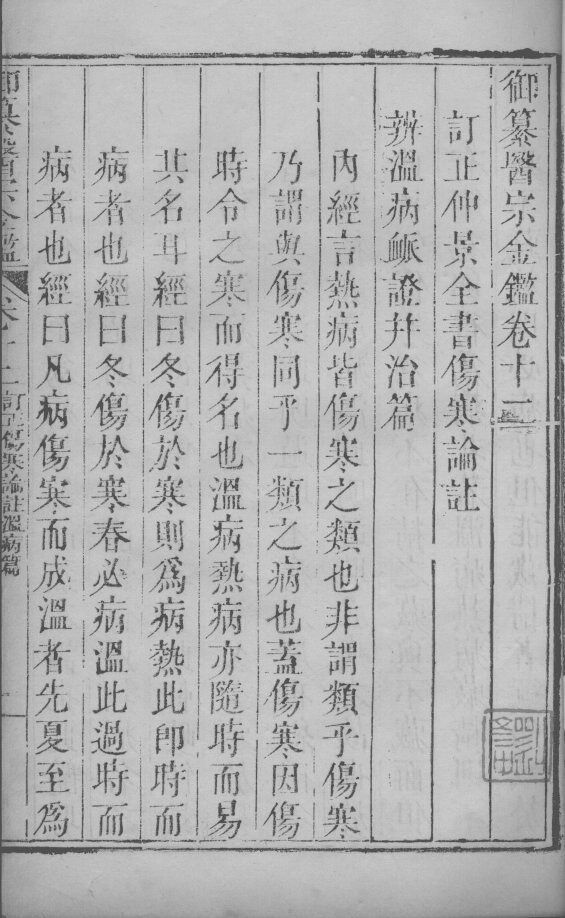 御纂醫宗金鑑卷十二
訂正仲景全書傷寒論註
辨溫病脈證并治篇
內經言熱病皆傷寒之類也非謂類乎傷寒
乃謂與傷寒同乎一類之病也蓋傷寒因傷
時令之寒而得名也溫病熱病亦隨時而易
其名耳經曰冬傷於寒則為病熱此即時而
病者也經曰冬傷於寒春必病溫此過時而
病者也經曰凡病傷寒而成溫者先夏至為
訂正傷寒論註溫病篇